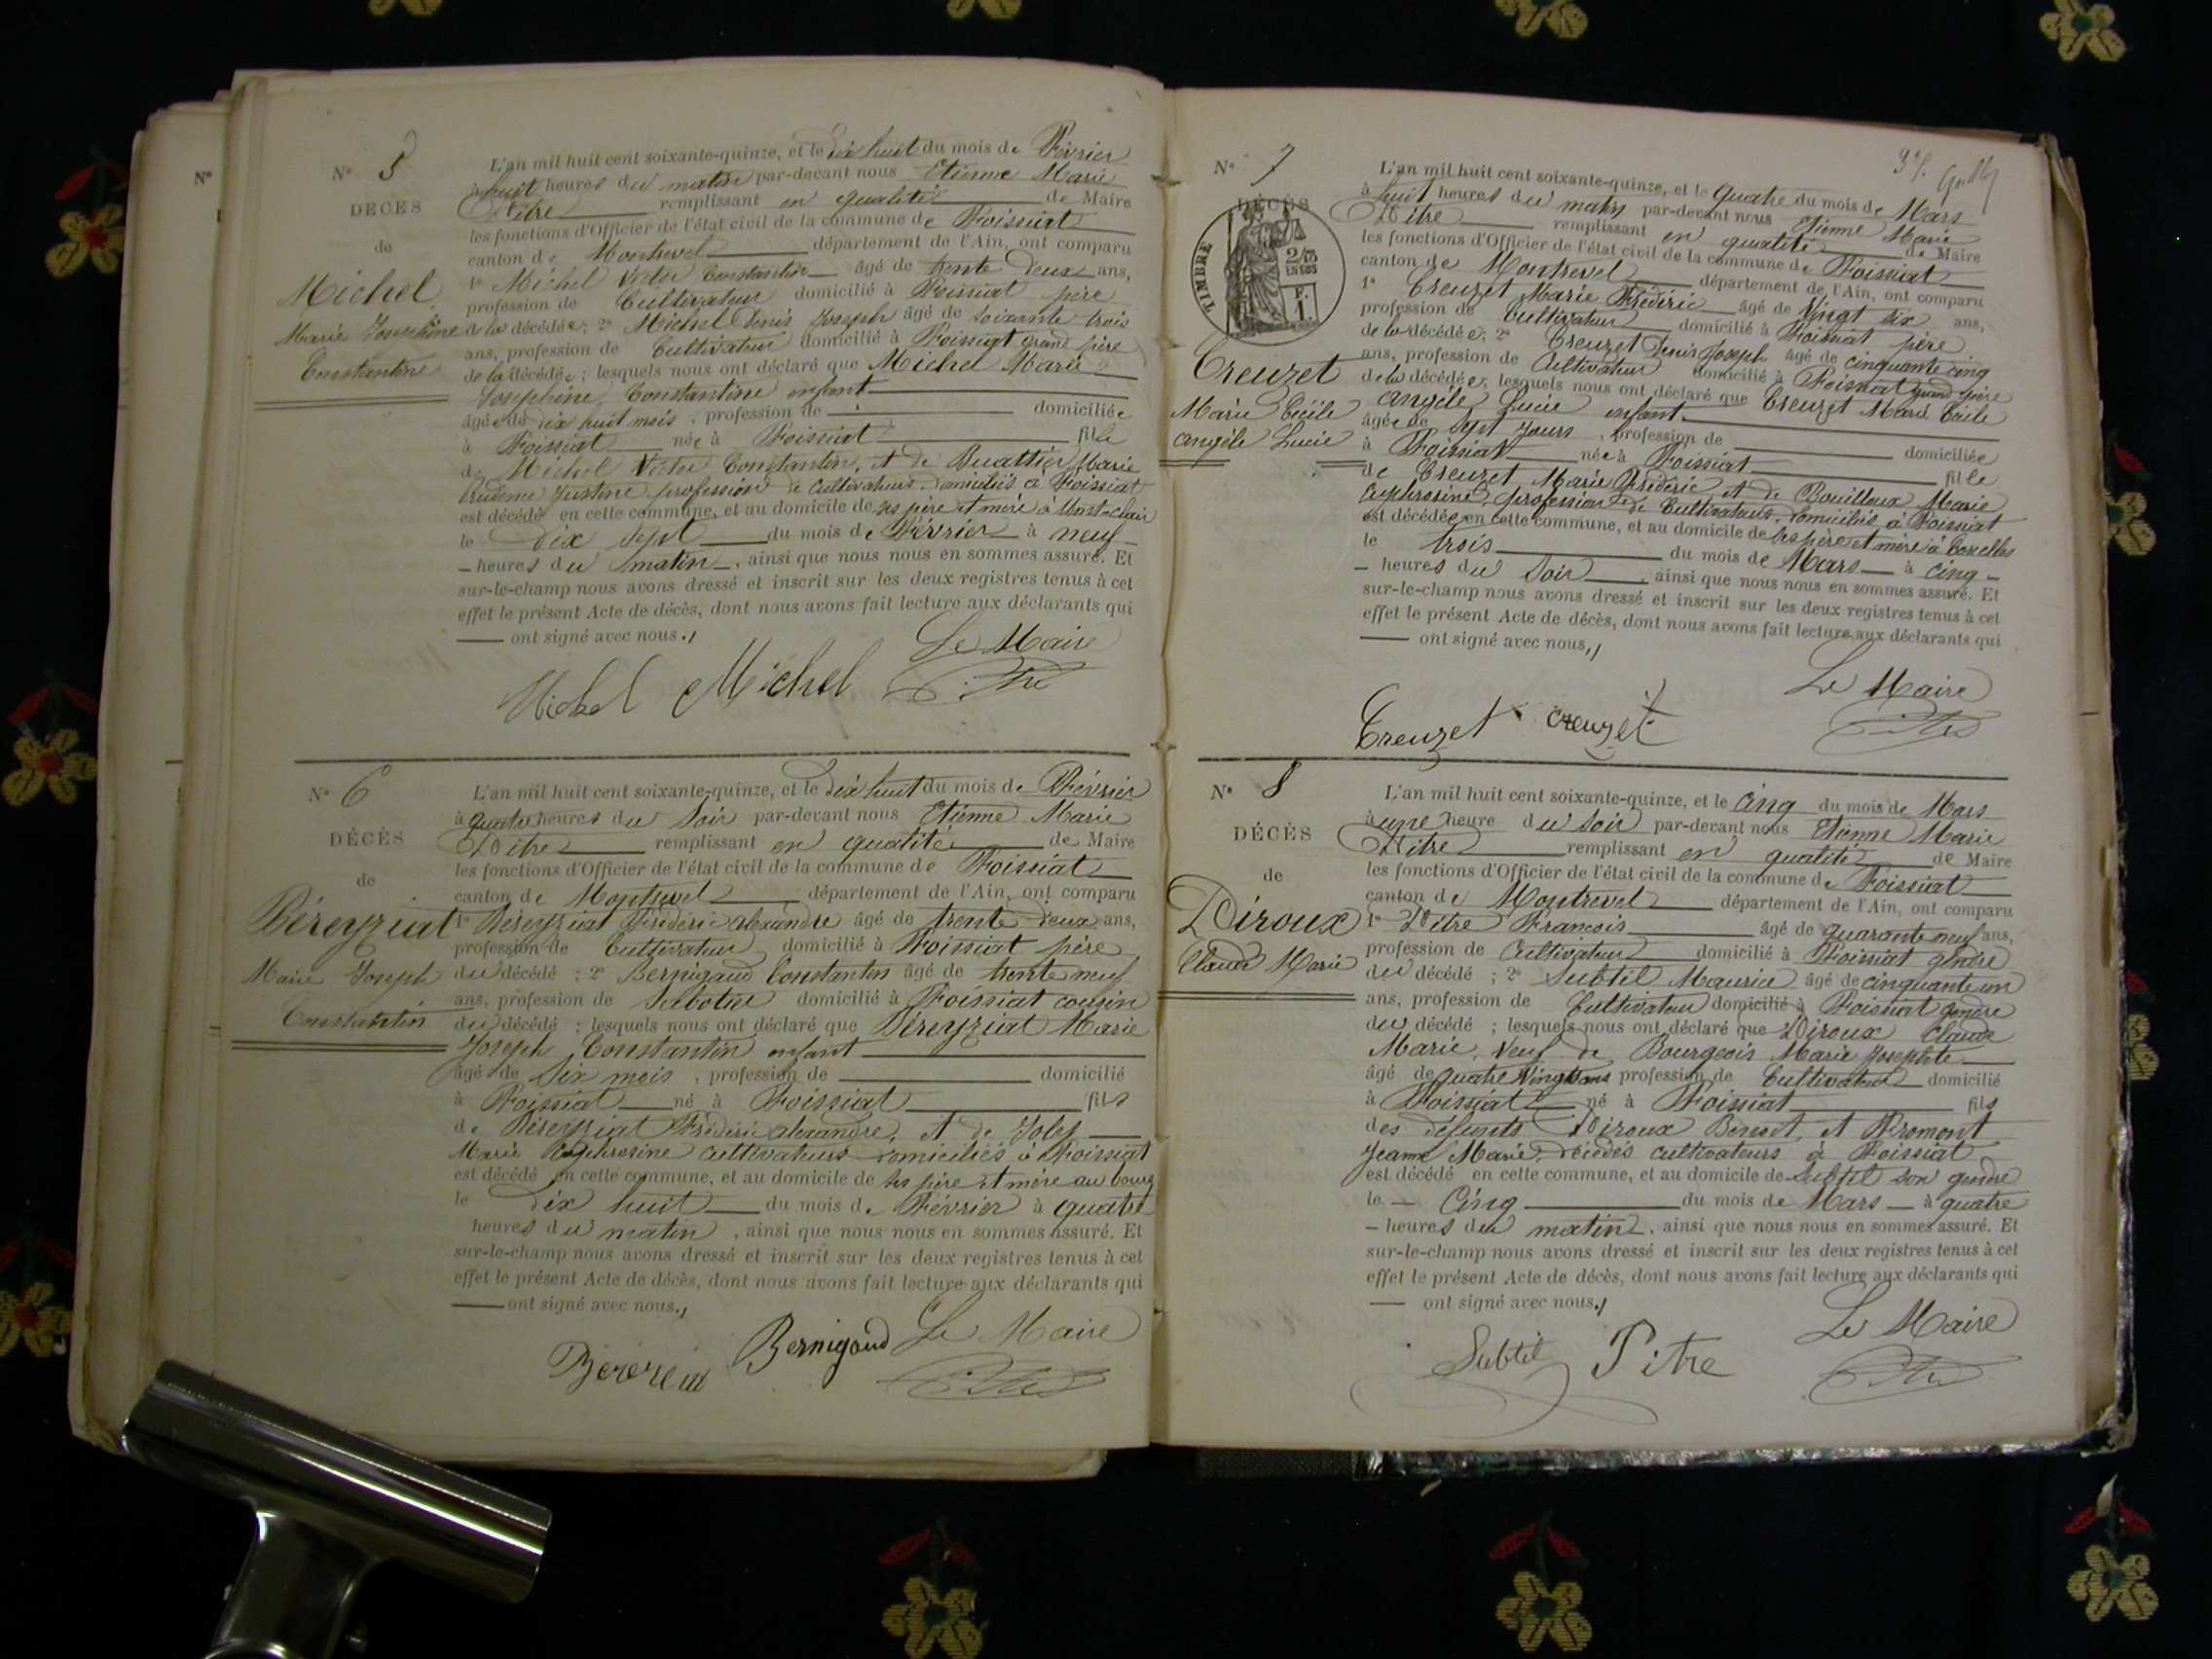 N°
N° 5
DÉCÈS
de
Michel
Marie Josephine
Constantine
L'an mil huit cent soixante-quinze, et le dix huit du mois de Février
à huit heures du matin par-devant nous Etienne Marie
Pitre remplissant en qualité de Maire
les fonctions d'Officier de l'état civil de la commune de Foissiat
canton de Montrevel département de l'Ain, ont comparu
1° Michel Victor Constantin âgé de trente deux ans,
profession de Cultivateur domicilié à Foissiat père
de la décédée; 2° Michel Denis Joseph âgé de soixante trois
ans, profession de Cultivateur domicilié à Foissiat grand père
de la décédée; lesquels nous ont déclaré que Michel Marie
Josephine Constantine enfant
âgée de dix huit mois, profession de domiciliée
à Foissiat née à Foissiat fille
de Michel Victor Constantin, et de Buattier Marie
Prudence Justine profession de cultivateurs domiciliés à Foissiat
est décédé en cette commune, et au domicile de ses père et mère à
le dix sept du mois de Février à neuf
heures du matin, ainsi que nous nous en sommes assuré. Et
sur-le-champ nous avons dressé et inscrit sur les deux registres tenus à cet
effet le présent Acte de décès, dont nous avons fait lecture aux déclarants qui
ont signé avec nous.
Le Maire
Michel Michel Pitre
N° 6
DÉCÈS
de
Béreyziat
Marie Joseph
Constantin
L'an mil huit cent soixante-quinze, et le dix huit du mois de Février
à quatre heures du soir par-devant nous Etienne Marie
Pitre remplissant en qualité de Maire
les fonctions d'Officier de l'état civil de la commune de Foissiat
canton de Montrevel département de l'Ain, ont comparu
1° Béreyziat Frédéric alexandre âgé de trente deux ans,
profession de Cultivateur domicilié à Foissiat père
du décédé; 2° Bernigaud Constantin âgé de trente neuf
ans, profession de Sabotier domicilié à Foissiat cousin
du décédé; lesquels nous ont déclaré que Béreyziat Marie
Joseph Constantin enfant
âgé de six mois, profession de domicilié
à Foissiat né à Foissiat fils
de Béreyziat Frédéric alexandre, et de Joly
Marie Euphrosine cultivateurs domiciliés à Foissiat
est décédé en cette commune, et au domicile de ses père et mère au bourg
le dix huit du mois de Février à quatre
heures du matin, ainsi que nous nous en sommes assuré. Et
sur-le-champ nous avons dressé et inscrit sur les deux registres tenus à cet
effet le présent Acte de décès, dont nous avons fait lecture aux déclarants qui
ont signé avec nous.
Bernigaud Le Maire
Pitre
N° 7
DÉCÈS
TIMBRE
Creuzet
Marie Cécile
angèle Lucie
L'an mil huit cent soixante-quinze, et le Quatre du mois de Mars
à huit heures du matin par-devant nous Etienne Marie
Pitre remplissant en qualité de Maire
les fonctions d'Officier de l'état civil de la commune de Foissiat
canton de Montrevel département de l'Ain, ont comparu
1° Creuzet Marie Frédéric âgé de Vingt six ans,
profession de Cultivateur domicilié à Foissiat père
de la décédée; 2° Creuzet Denis Joseph âgé de cinquante cinq
ans, profession de Cultivateur domicilié à Foissiat grand père
de la décédée; lesquels nous ont déclaré que Creuzet Marie Cécile
angèle Lucie enfant
âgée de sept jours, profession de domiciliée
à Foissiat née à Foissiat fille
de Creuzet Marie Frédéric et de Bouilloux Marie
euphrosine, profession de Cultivateurs domiciliés à Foissiat
est décédée en cette commune, et au domicile de ses père et mère à
le trois du mois de Mars à cinq
heures du soir, ainsi que nous nous en sommes assuré. Et
sur-le-champ nous avons dressé et inscrit sur les deux registres tenus à cet
effet le présent Acte de décès, dont nous avons fait lecture aux déclarants qui
ont signé avec nous,
Le Maire
Creuzet Creuzet Pitre
N° 8
DÉCÈS
de
Piroux
Claude Marie
L'an mil huit cent soixante-quinze, et le cinq du mois de Mars
à une heure du soir par-devant nous Etienne Marie
Pitre remplissant en qualité de Maire
les fonctions d'Officier de l'état civil de la commune de Foissiat
canton de Montrevel département de l'Ain, ont comparu
1° Pitre Francois âgé de quarante neuf ans,
profession de Cultivateur domicilié à Foissiat gendre
du décédé; 2° Subtil Maurice âgé de cinquante un
ans, profession de Cultivateur domicilié à Foissiat gendre
du décédé; lesquels nous ont déclaré que Piroux Claude
Marie, Veuf de Bourgeois Marie Josephte
âgé de quatre Vingts ans profession de Cultivateur domicilié
à Foissiat né à Foissiat fils
des défunts Piroux Benoit, et Fromont
Jeanne Marie, décédés cultivateurs à Foissiat
est décédé en cette commune, et au domicile de Subtil son gendre
le cinq du mois de Mars à quatre
heures du matin, ainsi que nous nous en sommes assuré. Et
sur-le-champ nous avons dressé et inscrit sur les deux registres tenus à cet
effet le présent Acte de décès, dont nous avons fait lecture aux déclarants qui
ont signé avec nous.
Le Maire
Subtil Pitre Pitre